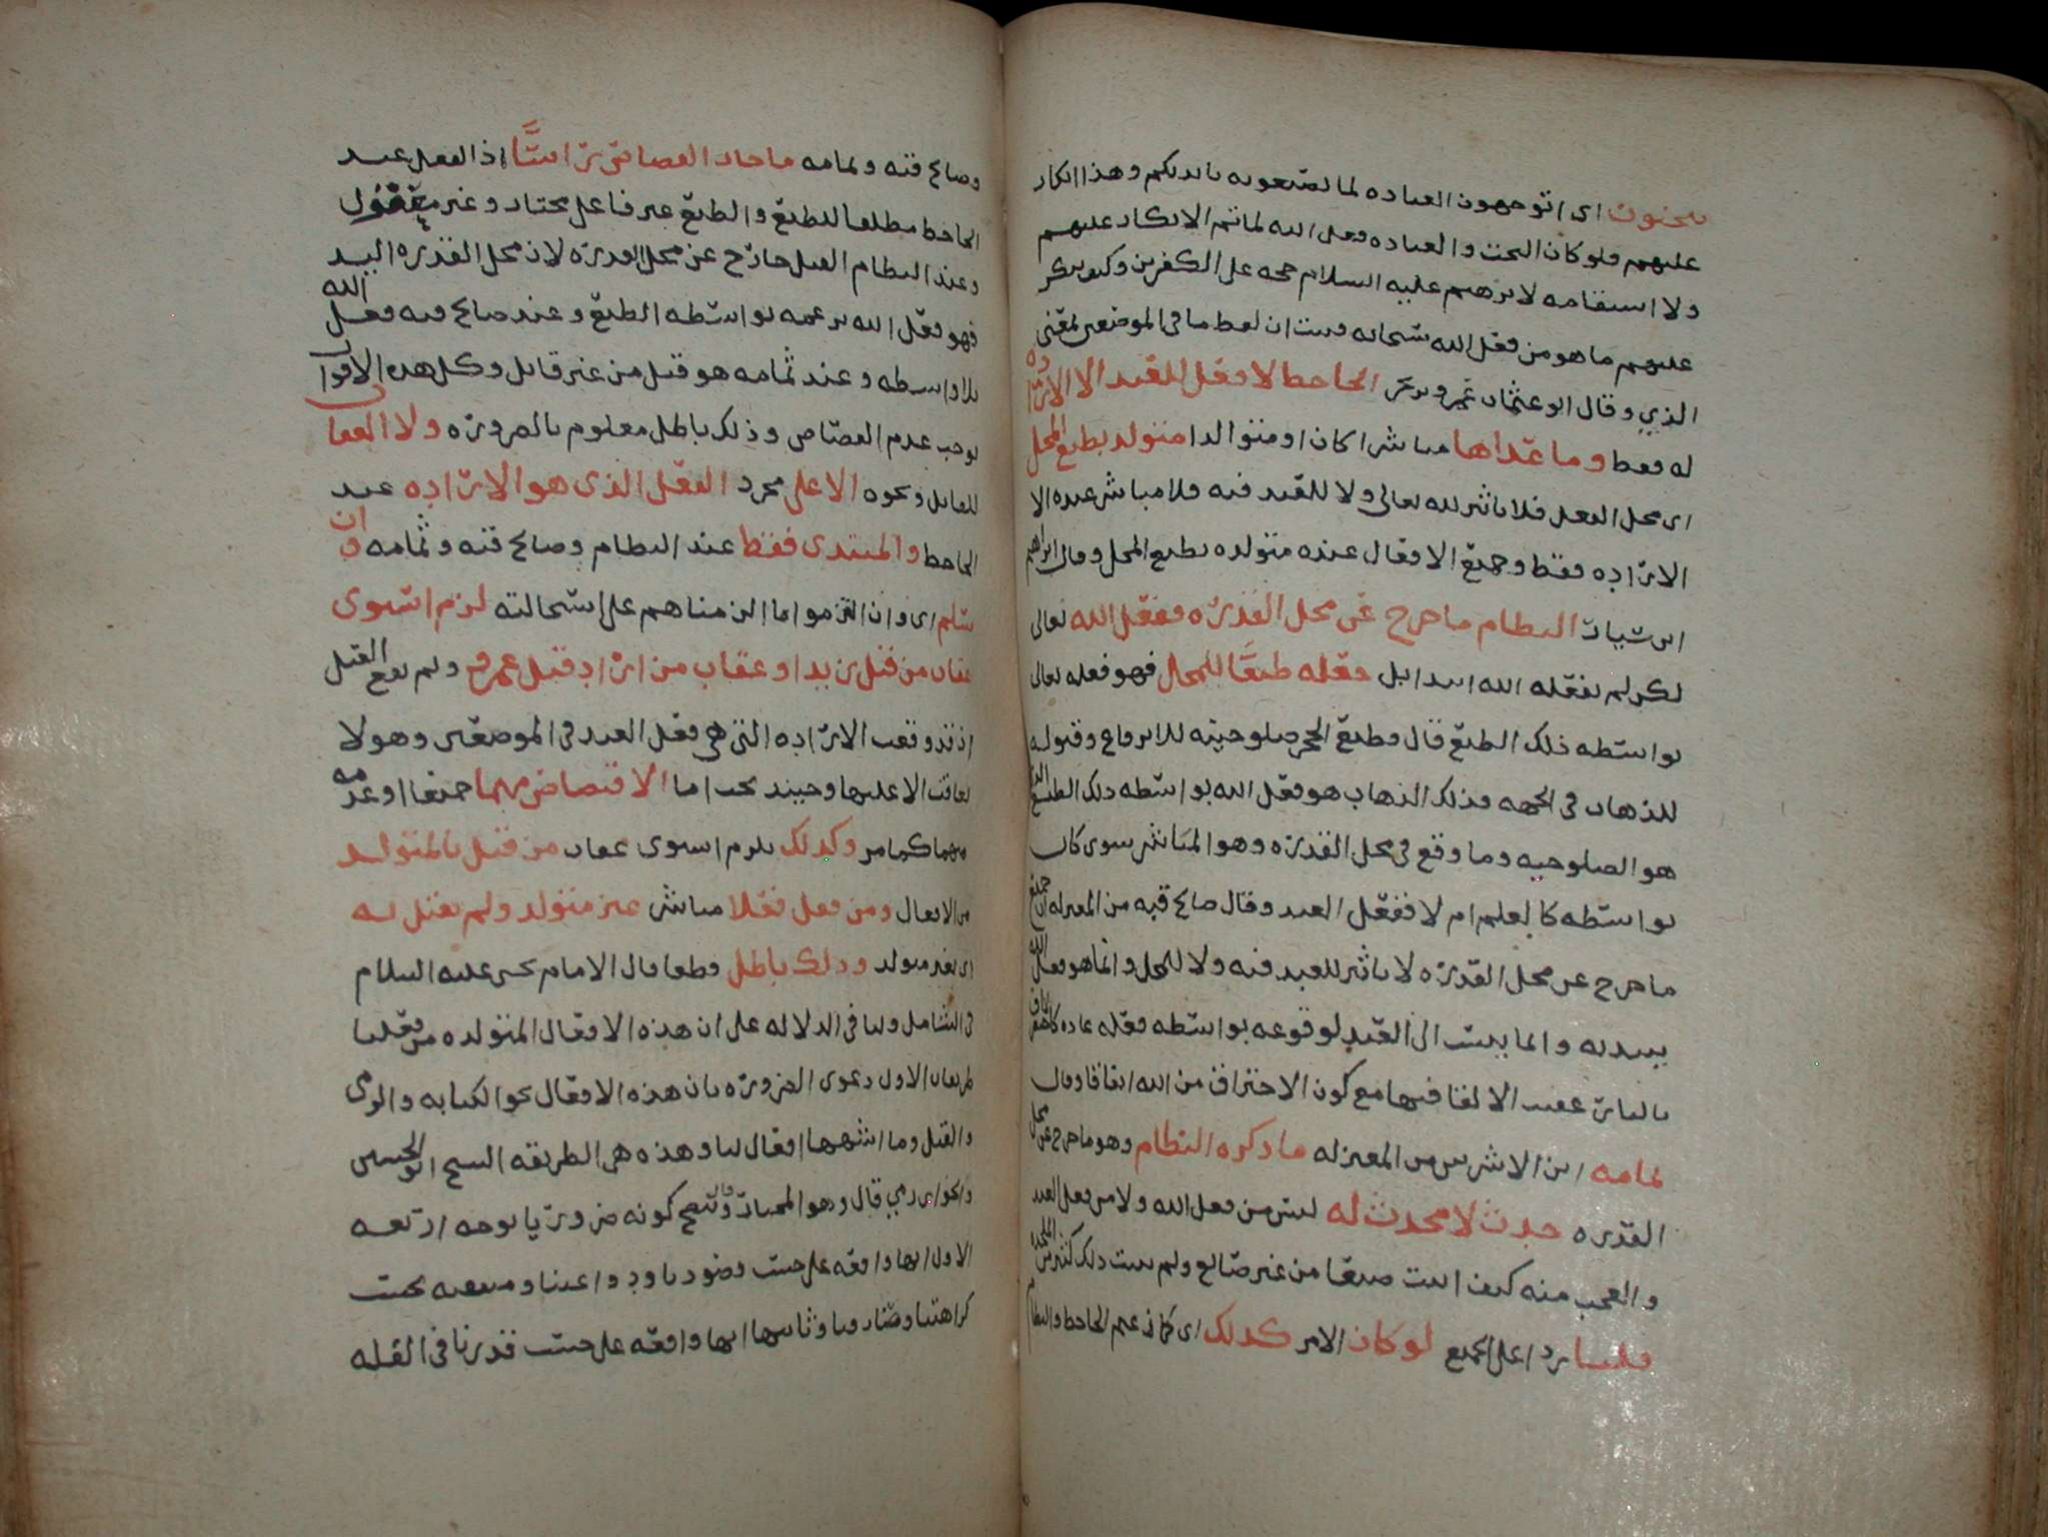 تنحتون اي اتوجهون العباده لما تصنعونه بايديكم وهذا انكار
عليهم فلو كان النحت والعباده فعل الله لما تم الانكار عليهم
ولا استقامه لابرهيم عليه السلام حجه على الكفرين وكيف ينكر
عليهم ما هو من فعل الله سبحانه فثبت ان لفظ ما في الموضعين بمعنى
الذي وقال ابو عثمان عمرو بن بحر الجاحظ لا فعل للعبد الا الاراده
له فقط وما عداها مباشرا كان او متوالدا متولد بطبع المحل
اي محل الفعل فلا تاثير لله تعالى ولا للعبد فيه فلا مباشر عنده الا
الاراده فقط وجميع الافعال عنده متولده بطبع المحل وقال ابراهيم
ابن سيار النظام ما خرج عن محل القدره ففعل الله تعالى
لكن لم يفعله الله ابتدا بل جعله طبعا للمحل فهو فعله تعالى
بواسطه ذلك الطبع قال وطبع الحجر صلوحيته للاندفاع وقبوله
للذهاب في الجهه فذلك الذهاب هو فعل الله بواسطه ذلك الطبع الذي
هو الصلوحيه وما وقع في محل القدره وهو المباشر سوى كان
بواسطه كالعلم ام لا ففعل العبد وقال صالح قبه من المعتزله ان جميع
ما خرج عن محل القدره لا تاثير للعبد فيه ولا للمحل وانما هو فعل الله
يبتديه وانما ينسب الى العبد لوقوعه بواسطه فعله عاده كالاحراق
بالنار عقيب الالقا فيها مع كون الاحتراق من الله اتفاقا وقال
ثمامه ابن الاشرس من المعتزله ما ذكره النظام وهو ما خرج عن محل
القدره حدث لا محدث له ليس من فعل الله ولا من فعل العبد
والعجب منه كيف اثبت صنعا من غير صانع ولم يثبت ذلك كثير من الملحده
قلنا ردا على الجميع لو كان الامر كذلك اي كما زعم الجاحظ والنظام
وصالح قبه وثمامه ما جاز القصاص راسا اذ الفعل عند
الجاحظ مطلقا للطبع والطبع غير فاعل مختار وغير معقول
وعند النظام القتل خارج عن محل القدره لان محل القدره اليد
فهو فعل الله بزعمه بواسطه الطبع وعند صالح قبه فعل الله
بلا واسطه وعند ثمامه هو قتل من غير قاتل وكل هذه الاقوال
يوجب عدم القصاص وذلك باطل معلوم بالضروره ولا العقاب
للقاتل ونحوه الا على مجرد الفعل الذي هو الاراده عند
الجاحظ والمبتدى فقط عند النظام وصالح قبه وثمامه وان
سلم اي وان التزموا ما الزمناهم على استحالته لزم استوى
عقاب من قتل زيدا وعقاب من اراد قتل عمرو ولم يقع القتل
اذ قد وقعت الاراده التي هي فعل العبد في الموضعين وهو لا
يعاقب الا عليها وحينئذ يجب اما الاقتصاص منهما جميعا او عدمه
منهما كما مر وكذلك يلزم استوى عقاب من قتل بالمتولد
من الافعال ومن فعل فعلا مباشر غير متولد ولم يقتل به
اي بغير متولد وذلك باطل قطعا قال الامام يحيى عليه السلام
في الشامل ولنا في الدلاله على ان هذه الافعال المتولده من فعلنا
طريقان الاول دعوى الضروره بان هذه الافعال نحو الكتابه والرمي
والقتل وما اشبهها افعال لنا وهذه هي الطريقه الشيخ ابو الحسين
والخوارزمي قال وهو المختار وتتضح كونه ضروريا بوجه اربعه
الاول انها واقعه على حسب قصودنا ودواعينا ومنتفيه بحسب
كراهتنا وصارفنا وثانيها انها واقعه على حسب قدرنا في القله